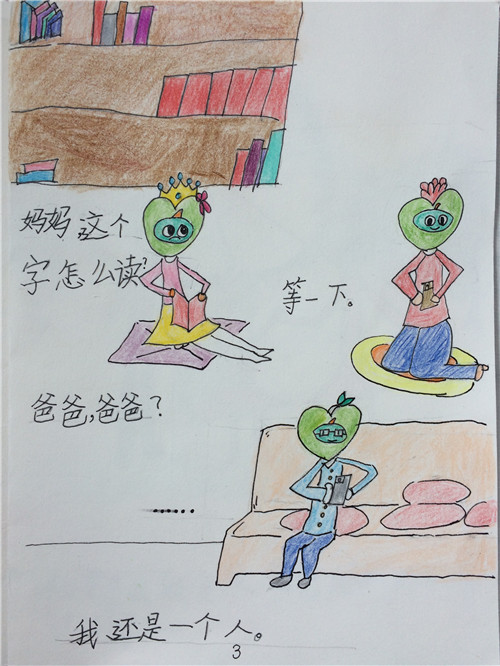 妈妈这个
字怎么读?
等一下。
爸爸,爸爸?
……
我还是一个人。
3